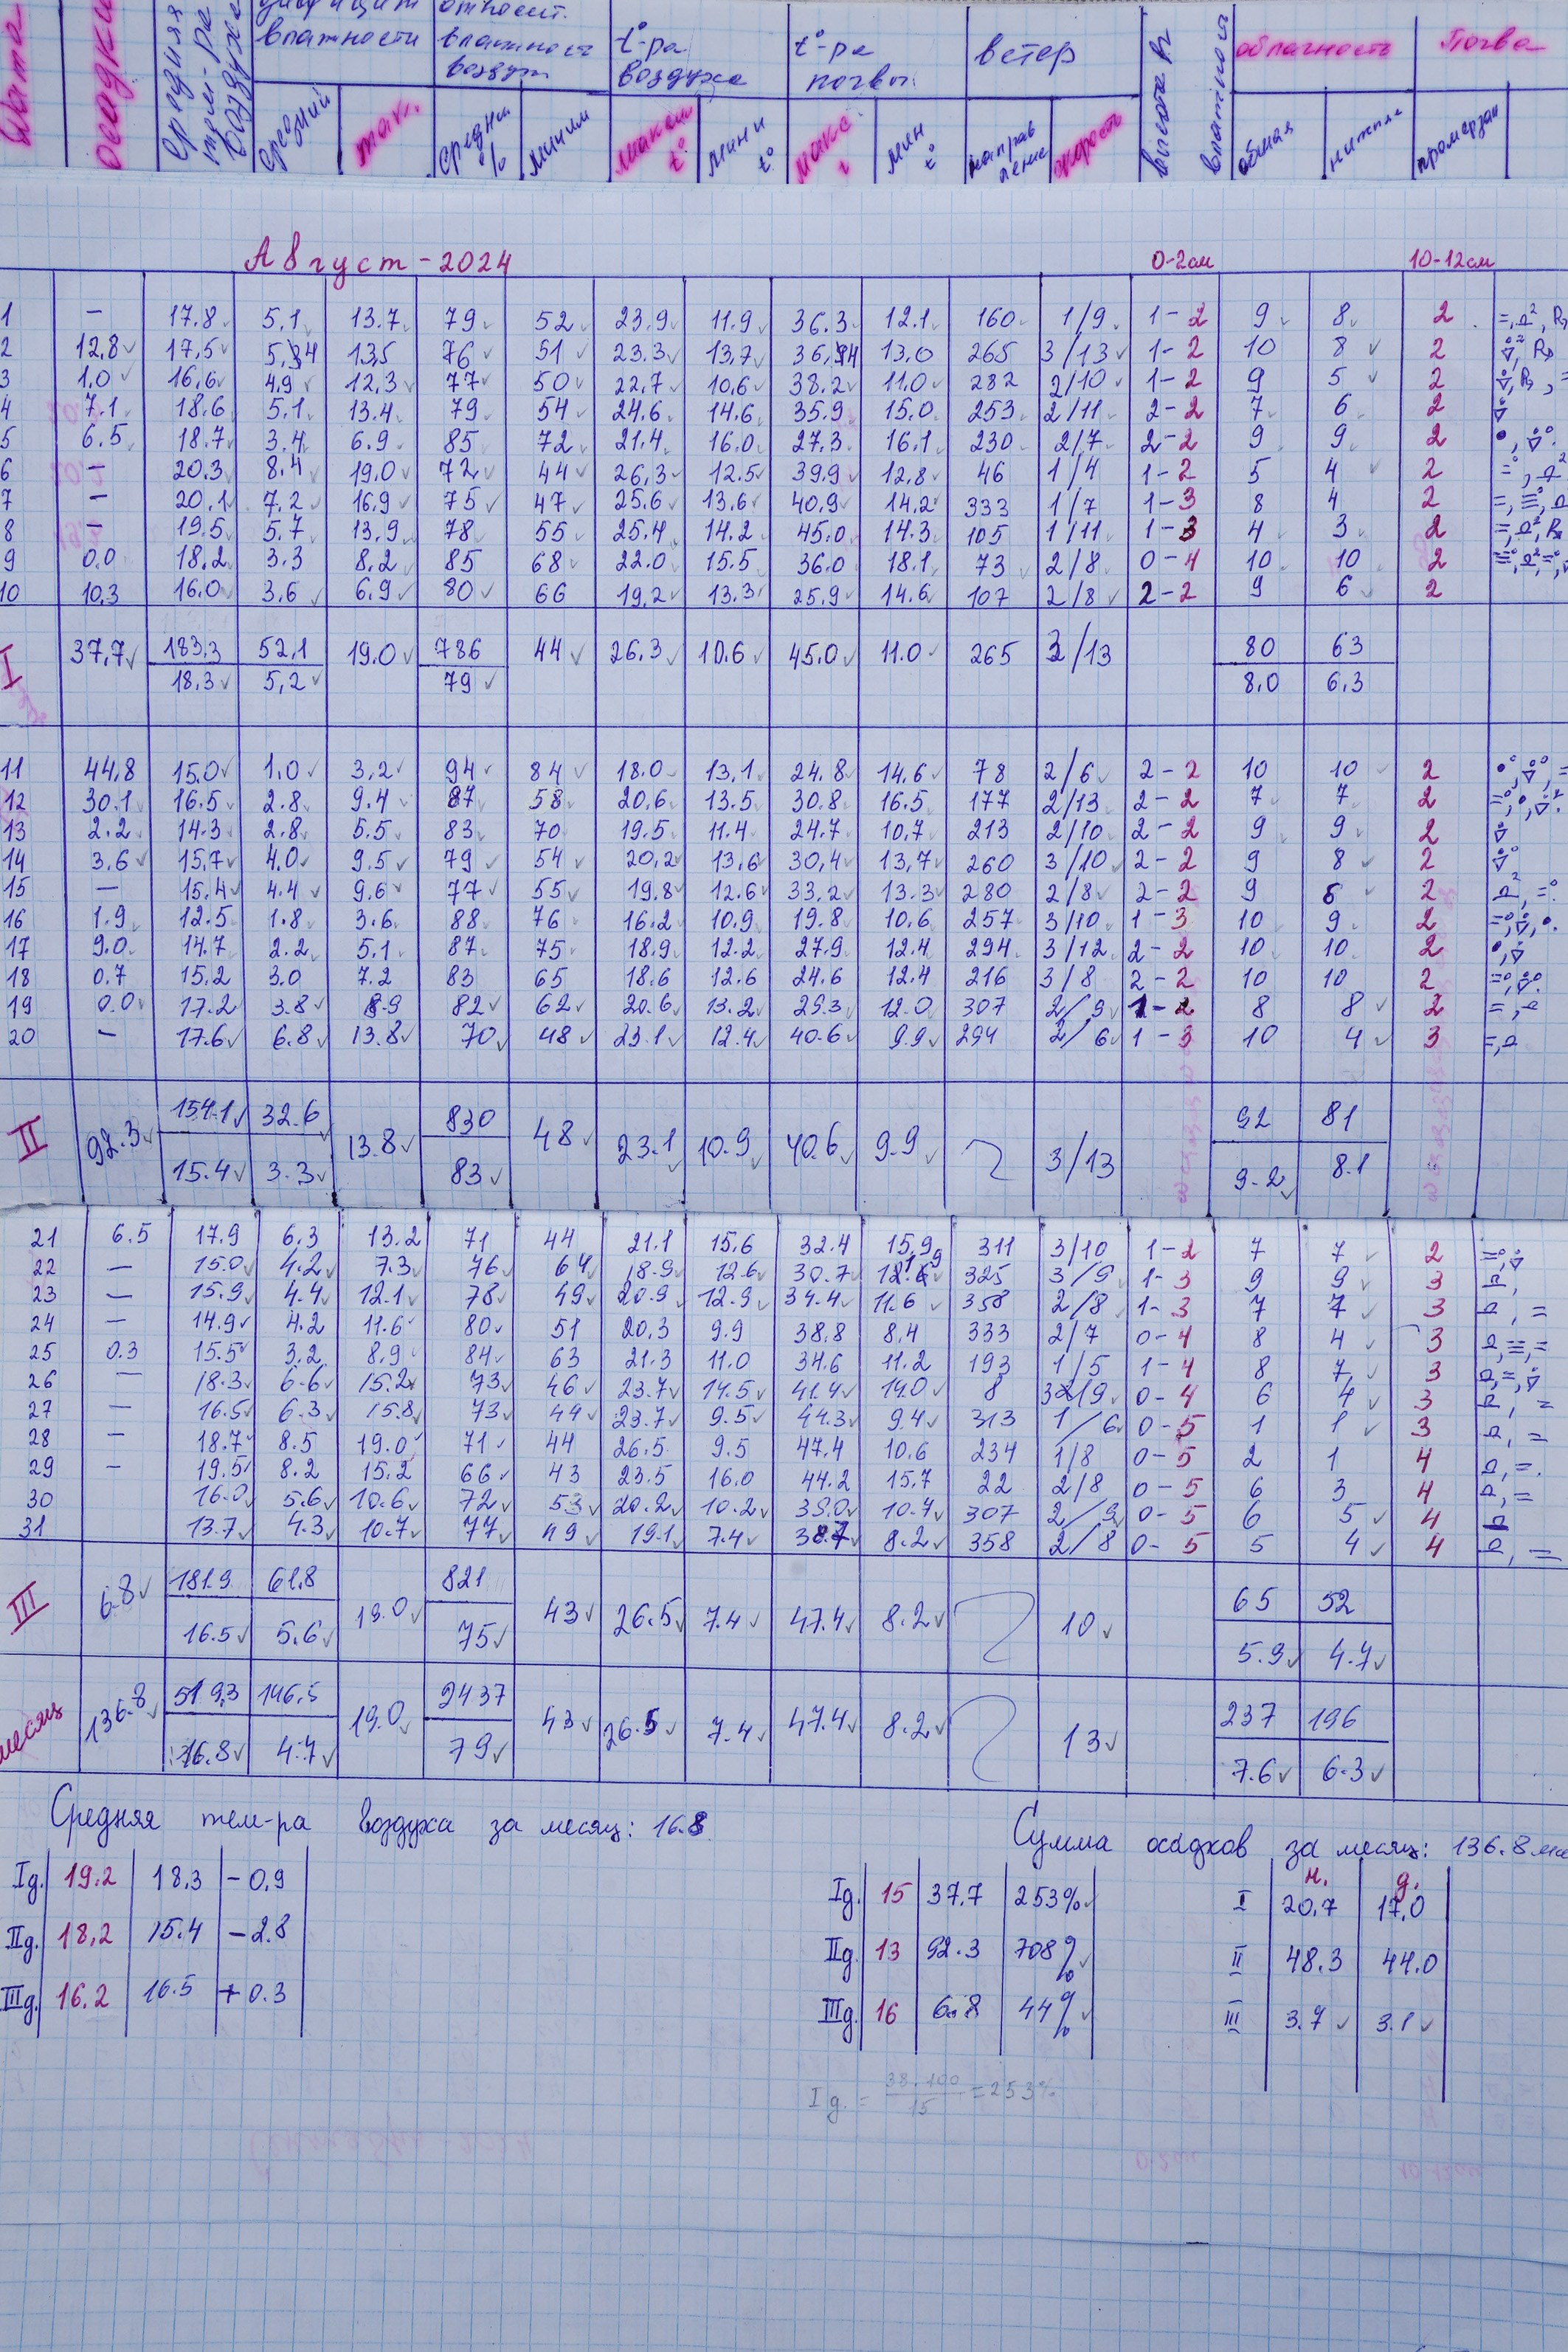 Дата осадки средняя тем-ра воздуха дефицит влажности относит. влажность воздуха t°-ра воздуха t°-ра почвы ветер высота влажность облачность Почва
средний мак. средняя % миним максим t° мини t° макс. t мин t° направление скорость общая нижняя промерзан
Август - 2024 0-2см 10-12см
1 — 17.8 5.1 13.7 79 52 23.9 11.9 36.3 12.1 160 1/9 1-2 9 8 2
2 12,8 17,5 5,4 13,5 76 51 23.3 13,7 36,4 13,0 265 3/13 1-2 10 8 2
3 1,0 16,6 4.9 12,3 77 50 22,7 10,6 38.2 11.0 282 2/10 1-2 9 5 2
4 7.1 18.6 5.1 13.4 79 54 24.6 14.6 35.9 15.0 253 2/11 2-2 7 6 2
5 6.5 18.7 3.4 6.9 85 72 21.4 16.0 27.3 16.1 230 2/7 2-2 9 9 2
6 — 20.3 8.4 19.0 72 44 26,3 12.5 39.9 12,8 46 1/4 1-2 5 4 2
7 — 20,1 7,2 16,9 75 47 25.6 13.6 40,9 14.2 333 1/7 1-3 8 4 2
8 — 19.5 5.7 13.9 78 55 25.4 14.2 45.0 14.3 105 1/11 1-3 4 3 2
9 0.0 18.2 3.3 8.2 85 68 22.0 15.5 36.0 18.1 73 2/8 0-4 10 10 2
10 10.3 16.0 3.6 6.9 80 66 19,2 13.3 25.9 14.6 107 2/8 2-2 9 6 2
I 37,7 183,3 52,1 19.0 786 44 26,3 10.6 45.0 11.0 265 3/13 80 63
18,3 5,2 79 8.0 6,3
11 44,8 15.0 1,0 3,2 94 84 18.0 13,1 24.8 14,6 78 2/6 2-2 10 10 2
12 30.1 16.5 2.8 9.4 87 58 20,6 13.5 30.8 16.5 177 2/13 2-2 7 7 2
13 2.2 14.3 2.8 5.5 83 70 19.5 11.4 24.7 10,7 213 2/10 2-2 9 9 2
14 3.6 15,7 4.0 9.5 79 54 20,2 13,6 30,4 13,7 260 3/10 2-2 9 8 2
15 — 15.4 4.4 9.6 77 55 19.8 12.6 33,2 13.3 280 2/8 2-2 9 5 2
16 1.9 12.5 1.8 3.6 88 76 16.2 10.9 19.8 10,6 257 3/10 1-3 10 9 2
17 9.0 14.7 2.2 5.1 87 75 18.9 12.2 27.9 12.4 294 3/12 2-2 10 10 2
18 0.7 15.2 3.0 7.2 83 65 18.6 12.6 24.6 12.4 216 3/8 2-2 10 10 2
19 0.0 17.2 3.8 8.9 82 62 20.6 13.2 29.3 12.0 307 2/9 1-2 8 8 2
20 — 17.6 6.8 13.8 70 48 23.1 12.4 40.6 9.9 294 2/6 1-3 10 4 3
II 92.3 154.1 32.6 13.8 830 48 23.1 10.9 40.6 9.9 3/13 92 81
15.4 3.3 83 9.2 8.1
21 6.5 17.9 6.3 13.2 71 44 21.1 15.6 32.4 15.9 311 3/10 1-2 7 7 2
22 — 15.0 4.2 7.3 76 64 18.9 12.6 30.7 325 3/9 1-3 9 9 3
23 — 15.9 4.4 12.1 78 49 20.9 12.9 34.4 11.6 358 2/8 1-3 7 7 3
24 — 14.9 4.2 11.6 80 51 20,3 9.9 38.8 8,4 333 2/7 0-4 8 4 3
25 0.3 15.5 3.2 8.9 84 63 21.3 11.0 34.6 11.2 193 1/5 1-4 8 7 3
26 — 18.3 6.6 15.2 73 46 23.7 14.5 41.4 14.0 8 0-4 6 4 3
27 — 16.5 6.3 15.8 73 44 23.7 9.5 44.3 9.4 313 1/6 0-5 1 1 3
28 — 18.7 8.5 19.0 71 44 26.5 9.5 47.4 10.6 234 1/8 0-5 2 1 4
29 — 19.5 8.2 15.2 66 43 23.5 16.0 44.2 15.7 22 2/8 0-5 6 3 4
30 16.0 5.6 10.6 72 53 20.2 10.2 39.0 10.4 307 2/9 0-5 6 5 4
31 13.7 4.3 10.7 77 49 19.1 7.4 38.7 8.2 358 2/8 0-5 5 4 4
III 6.8 181.9 61.8 19.0 821 43 26.5 7.4 47.4 8.2 10 65 52
16.5 5.6 75 5.9 4.7
месяц 136.8 519,3 146.5 19.0 2437 43 26.5 7.4 47.4 8.2 13 237 196
16.8 4.7 79 7.6 6.3
Средняя тем-ра воздуха за месяц: 16.8
Сумма осадков за месяц: 136.8 мм
н. д.
Iд. 19.2 18.3 -0,9 Iд. 15 37.7 253% I 20,7 17,0
IIд. 18,2 15.4 -2.8 IIд. 13 92.3 708% II 48.3 44.0
IIIд. 16.2 16.5 +0.3 IIIд. 16 6.8 44% III 3.7 3.1
Iд. = 38.100 / 15 = 253%